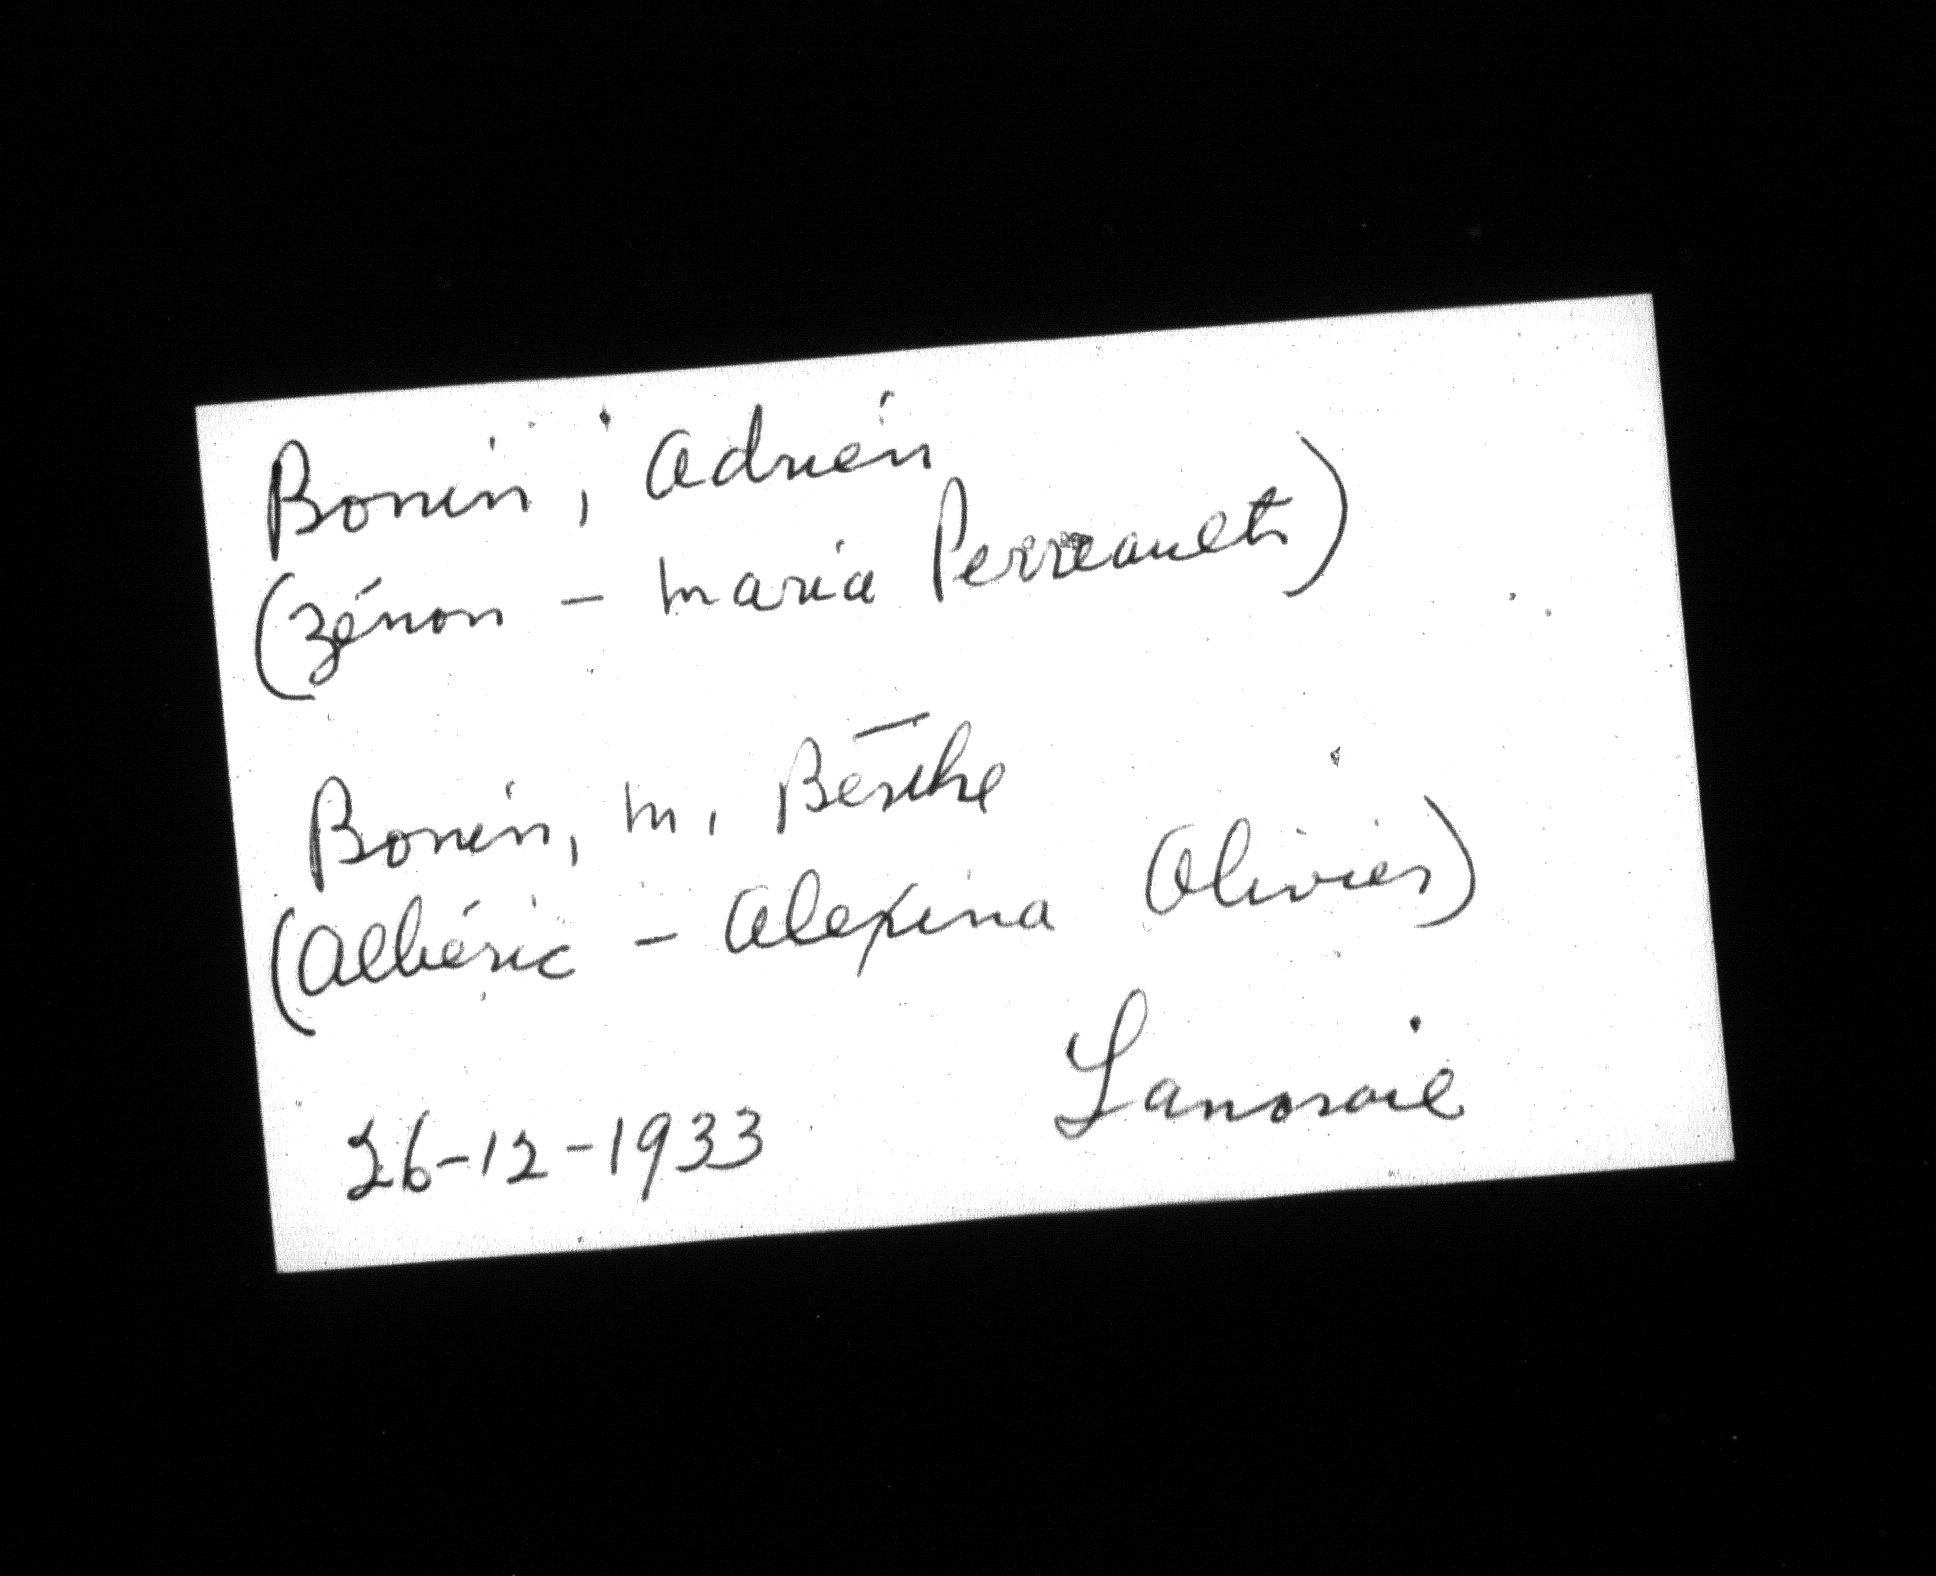 Bonin, Adrien
(Zénon - Maria Perreault)
Bonin, M. Berthe
(Albéric - Alexina Olivier)
26-12-1933 Lanoraie